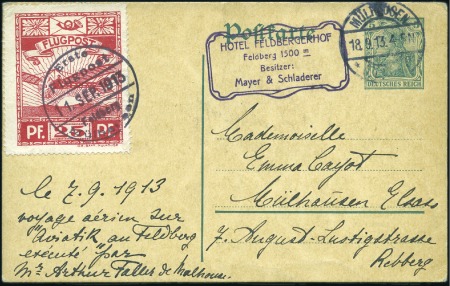 Postkarte
FLUGPOST
PF. 25 PF.
SEP. 1913
HOTEL FELDBERGERHOF
Feldberg 1500 m
Besitzer:
Mayer & Schladerer
MÜLHAUSEN
18.9.13.
DEUTSCHES REICH
Mademoiselle
Emma Cayot
Mülhausen Elsass
7. August-Lustigstrasse
Rebberg
le 7.9.1913
voyage aérien sur
"Aviatik au Feldberg
exécuté par
Mr Arthur Faller de Mulhouse.